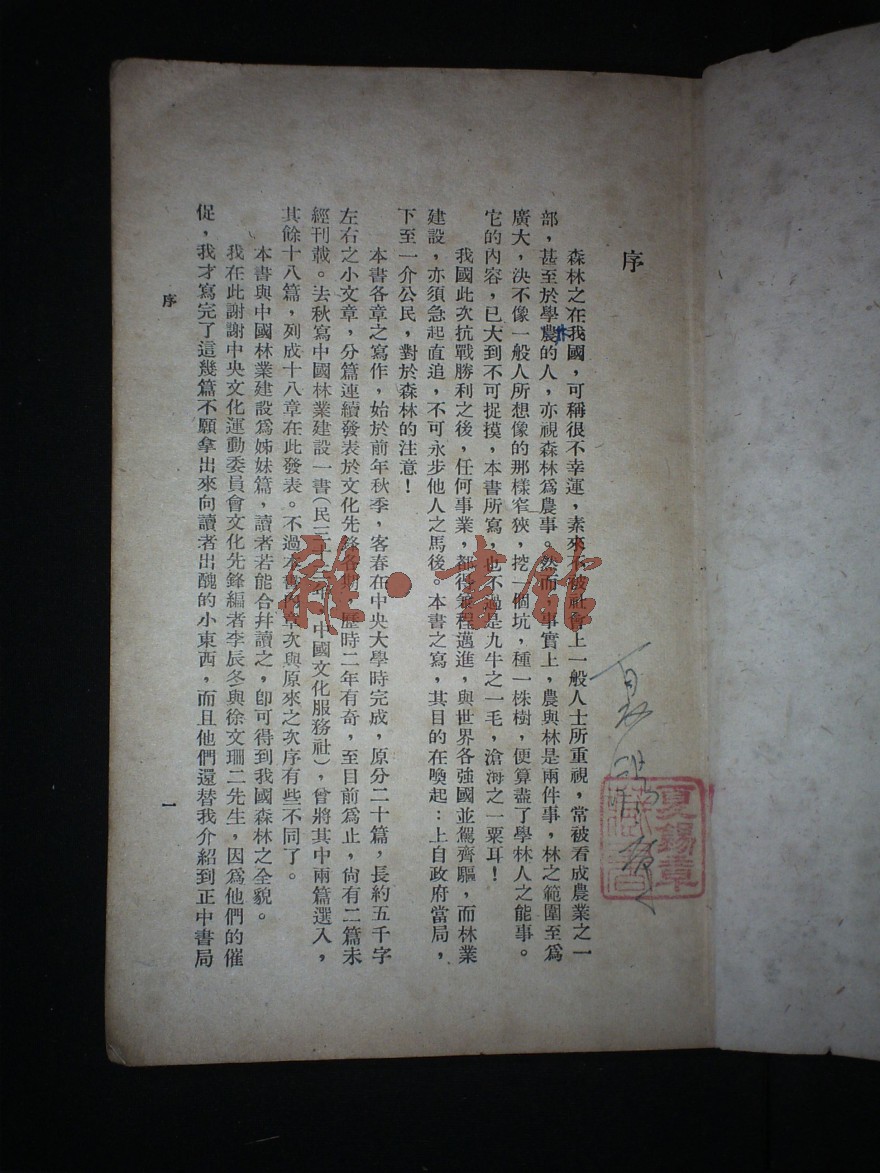 序
森林之在我國，可稱很不幸運，素來不被社會上一般人士所重視，常被看成農業之一
部，甚至於學農的人，亦視森林爲農事。然而，事實上，農與林是兩件事，林之範圍至爲
廣大，決不像一般人所想像的那樣窄狹，挖一個坑，種一株樹，便算盡了學林人之能事。
它的內容，已大到不可捉摸，本書所寫，也不過是九牛之一毛，滄海之一粟耳！
我國此次抗戰勝利之後，任何事業，都得兼程邁進，與世界各強國並駕齊驅，而林業
建設，亦須急起直追，不可永步他人之馬後。本書之寫，其目的在喚起：上自政府當局，
下至一介公民，對於森林的注意！
本書各章之寫作，始於前年秋季，客春在中央大學時完成，原分二十篇，長約五千字
左右之小文章，分篇連續發表於文化先鋒各期，歷時二年有奇，至目前爲止，尙有二篇未
經刊載。去秋寫中國林業建設一書（民三十 中國文化服務社），曾將其中兩篇選入，
其餘十八篇，列成十八章在此發表。不過本書內章次與原來之次序有些不同了。
本書與中國林業建設爲姊妹篇，讀者若能合幷讀之，卽可得到我國森林之全貌。
我在此謝謝中央文化運動委員會文化先鋒編者李辰冬與徐文珊二先生，因爲他們的催
促，我才寫完了這幾篇不願拿出來向讀者出醜的小東西，而且他們還替我介紹到正中書局
序
一
雜·書館
夏錫章
藏書